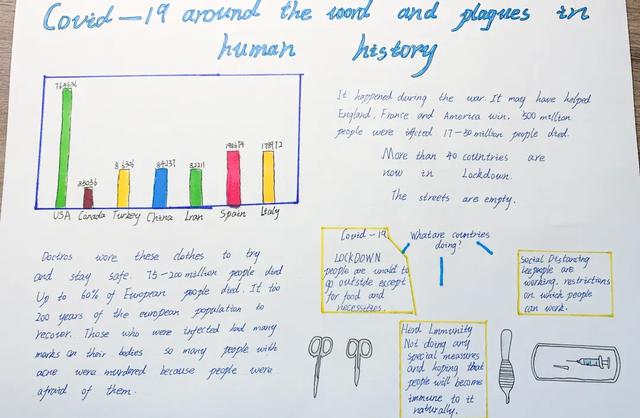 Covid-19 around the word and plagues in
human history
USA Canada Turkey China Iran Spain Italy
It happened during the war. It may have helped
England, France and America win. 500 million
people were infected 17-50 million people died.
More than 40 countries are
now in Lockdown.
The streets are empty.
Doctros wore these clothes to try
and stay safe. 75-200 million people died
Up to 60% of European people died. It too
200 years of the european population to
recover. Those who were infected had many
marks on their bodies so many people with
acne were murdered because people were
afraid of them.
Covid-19
LOCKDOWN
people are unable to
go outside except
for food and
necessities.
What are countries
doing?
Social Distancing
people are
working, restrictions
on which people
can work.
Herd Immunity
Not doing any
special measures
and hoping that
people will become
immune to it
naturally.